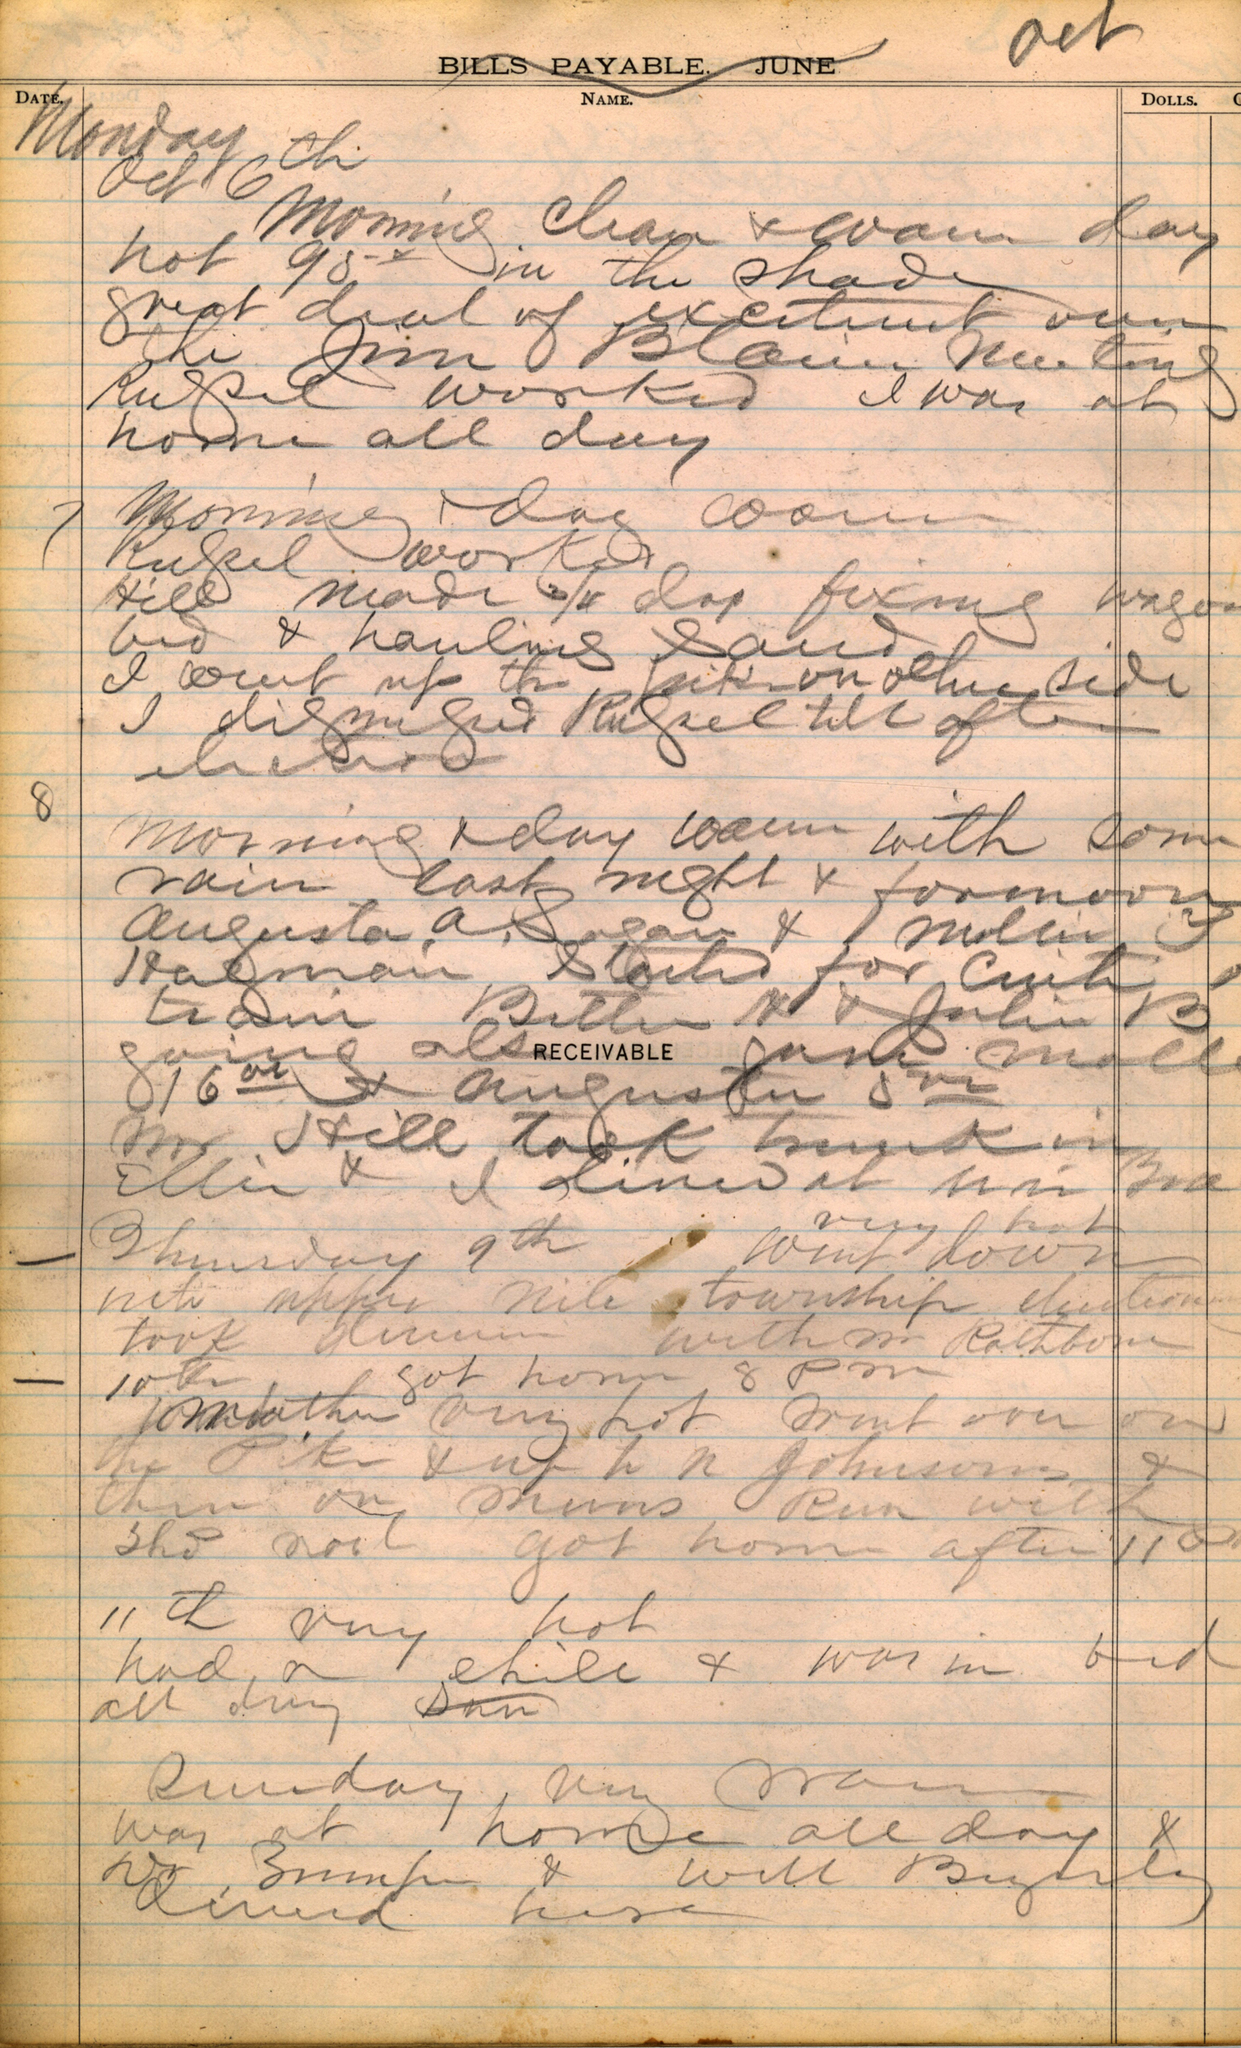 Oct
BILLS PAYABLE. JUNE
DATE. NAME. DOLLS. C
Monday
Oct 6th
Morning Clear & warm day
hot 95 in the shade
great deal of excitment over
the Jim Blain Meeting
Russel worked I was at
home all day
7 Morning & day warm
Russel worked
Hill made 3/4 day fixing wagon
bed & hauling sand
I went up the pike on other side
I dismissed Russel till after
election
8
Morning & day warm with some
rain last night & forenoon
Augusta, A. Logan & Mollie
Hagman started for Cinti
train & Julia B
going also RECEIVABLE gave Mollie
$16 00 & Augusta 5 00
Mr Hill took trunk in
Ellie & I dined at
very hot
Thursday 9th went down
upper Nile township election
took dinner with Mr Rathbone
10th got home 8 PM
very hot went over on
the Pike & up to N Johnsons &
then on Muns Run with
got home after 11
11th very hot
had a chill & was in bed
all day
Sunday very warm
was at home all day &
& Will Byerly
dined here